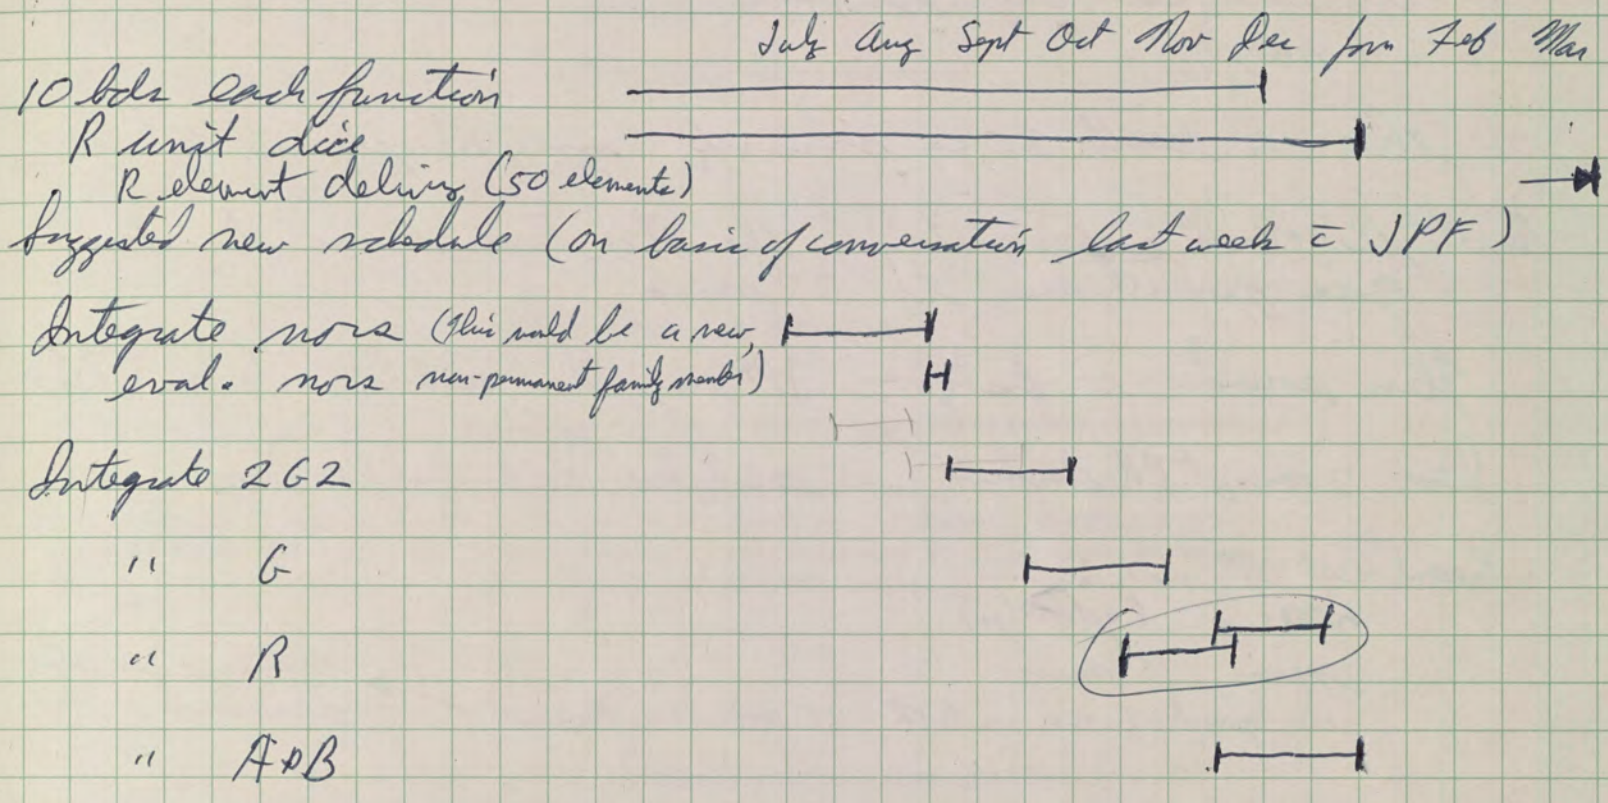 July Aug Sept Oct Nov Dec Jan Feb Mar
10 bds each function
R unit dice
R element delivery (50 elements)
Suggested new schedule (on basis of conversation last week c̄ JPF)
Integrate nors (This would be a new,
eval. nors non-permanent family member)
Integrate 2G2
" G
" R
" A B